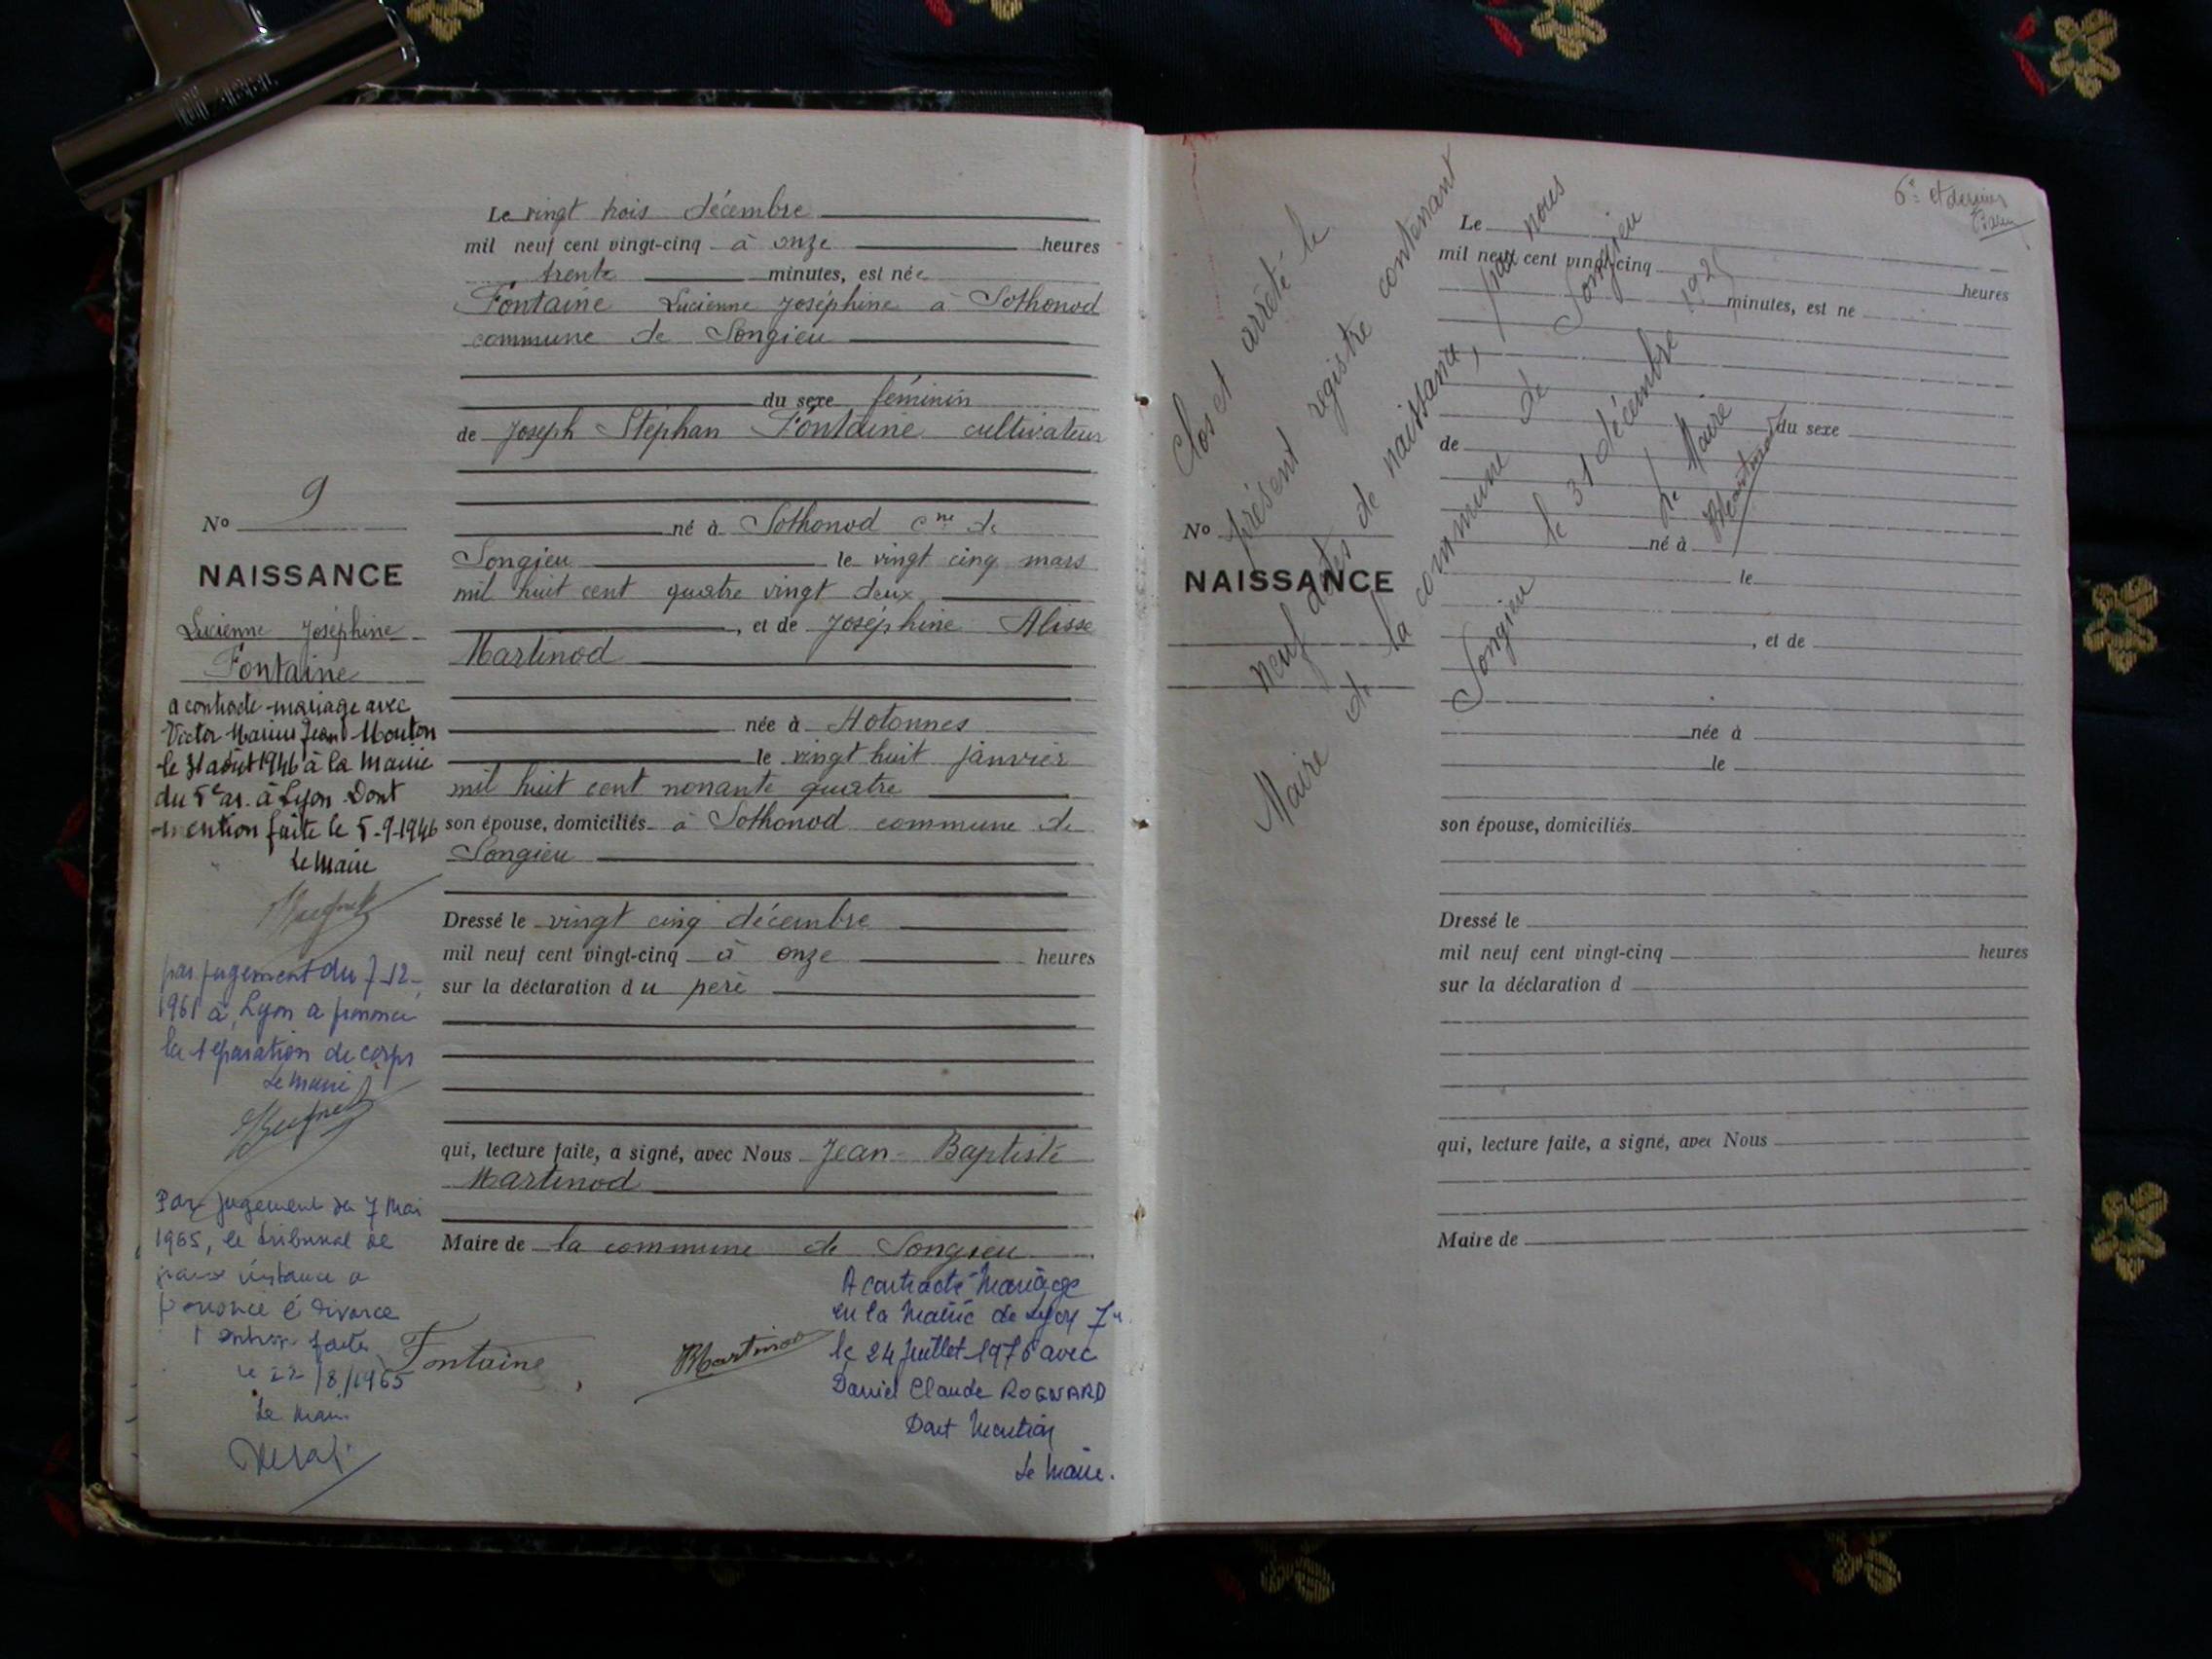 Le vingt trois décembre
mil neuf cent vingt-cinq à onze heures
trente minutes, est née
Fontaine Lucienne Joséphine à Sothonod
commune de Songieu
du sexe féminin
de Joseph Stéphan Fontaine cultivateur
né à Sothonod cne de
Songieu le vingt cinq mars
mil huit cent quatre vingt deux
, et de Joséphine Alisse
Martinod
née à Hotonnes
le vingt huit janvier
mil huit cent nonante quatre
son épouse, domiciliés à Sothonod commune de
Songieu
Dressé le vingt cinq décembre
mil neuf cent vingt-cinq à onze heures
sur la déclaration du père
qui, lecture faite, a signé, avec Nous Jean-Baptiste
Martinod
Maire de la commune de Songieu
Fontaine
Martinod
No 9
NAISSANCE
Lucienne Joséphine
Fontaine
a contracté mariage avec
Victor Marius Jean Mouton
le 31 août 1946 à la Mairie
du 5e ar. à Lyon. Dont
mention faite le 5-9-1946
Le Maire
par jugement du 7-12-
1961 à Lyon a prononcé
la séparation de corps
Le Maire
Par jugement du 7 Mai
1965, le tribunal de
instance a
prononcé le divorce
faite
le 22/8/1965
Le Maire
A contracté Mariage
en la Mairie de Lyon 7e
le 24 Juillet 1976 avec
Daniel Claude ROGNARD
Dont Mention
Le Maire.
6e et dernier
Clos et arrêté le
présent registre contenant
neuf actes de naissance, par nous
Maire de la commune de Songieu
Songieu le 31 décembre 1925
le Maire
Martinod
Le
mil neuf cent vingt-cinq heures
minutes, est né
du sexe
de
No
né à
NAISSANCE
le
, et de
née à
le
son épouse, domiciliés
Dressé le
mil neuf cent vingt-cinq heures
sur la déclaration d
qui, lecture faite, a signé, avec Nous
Maire de